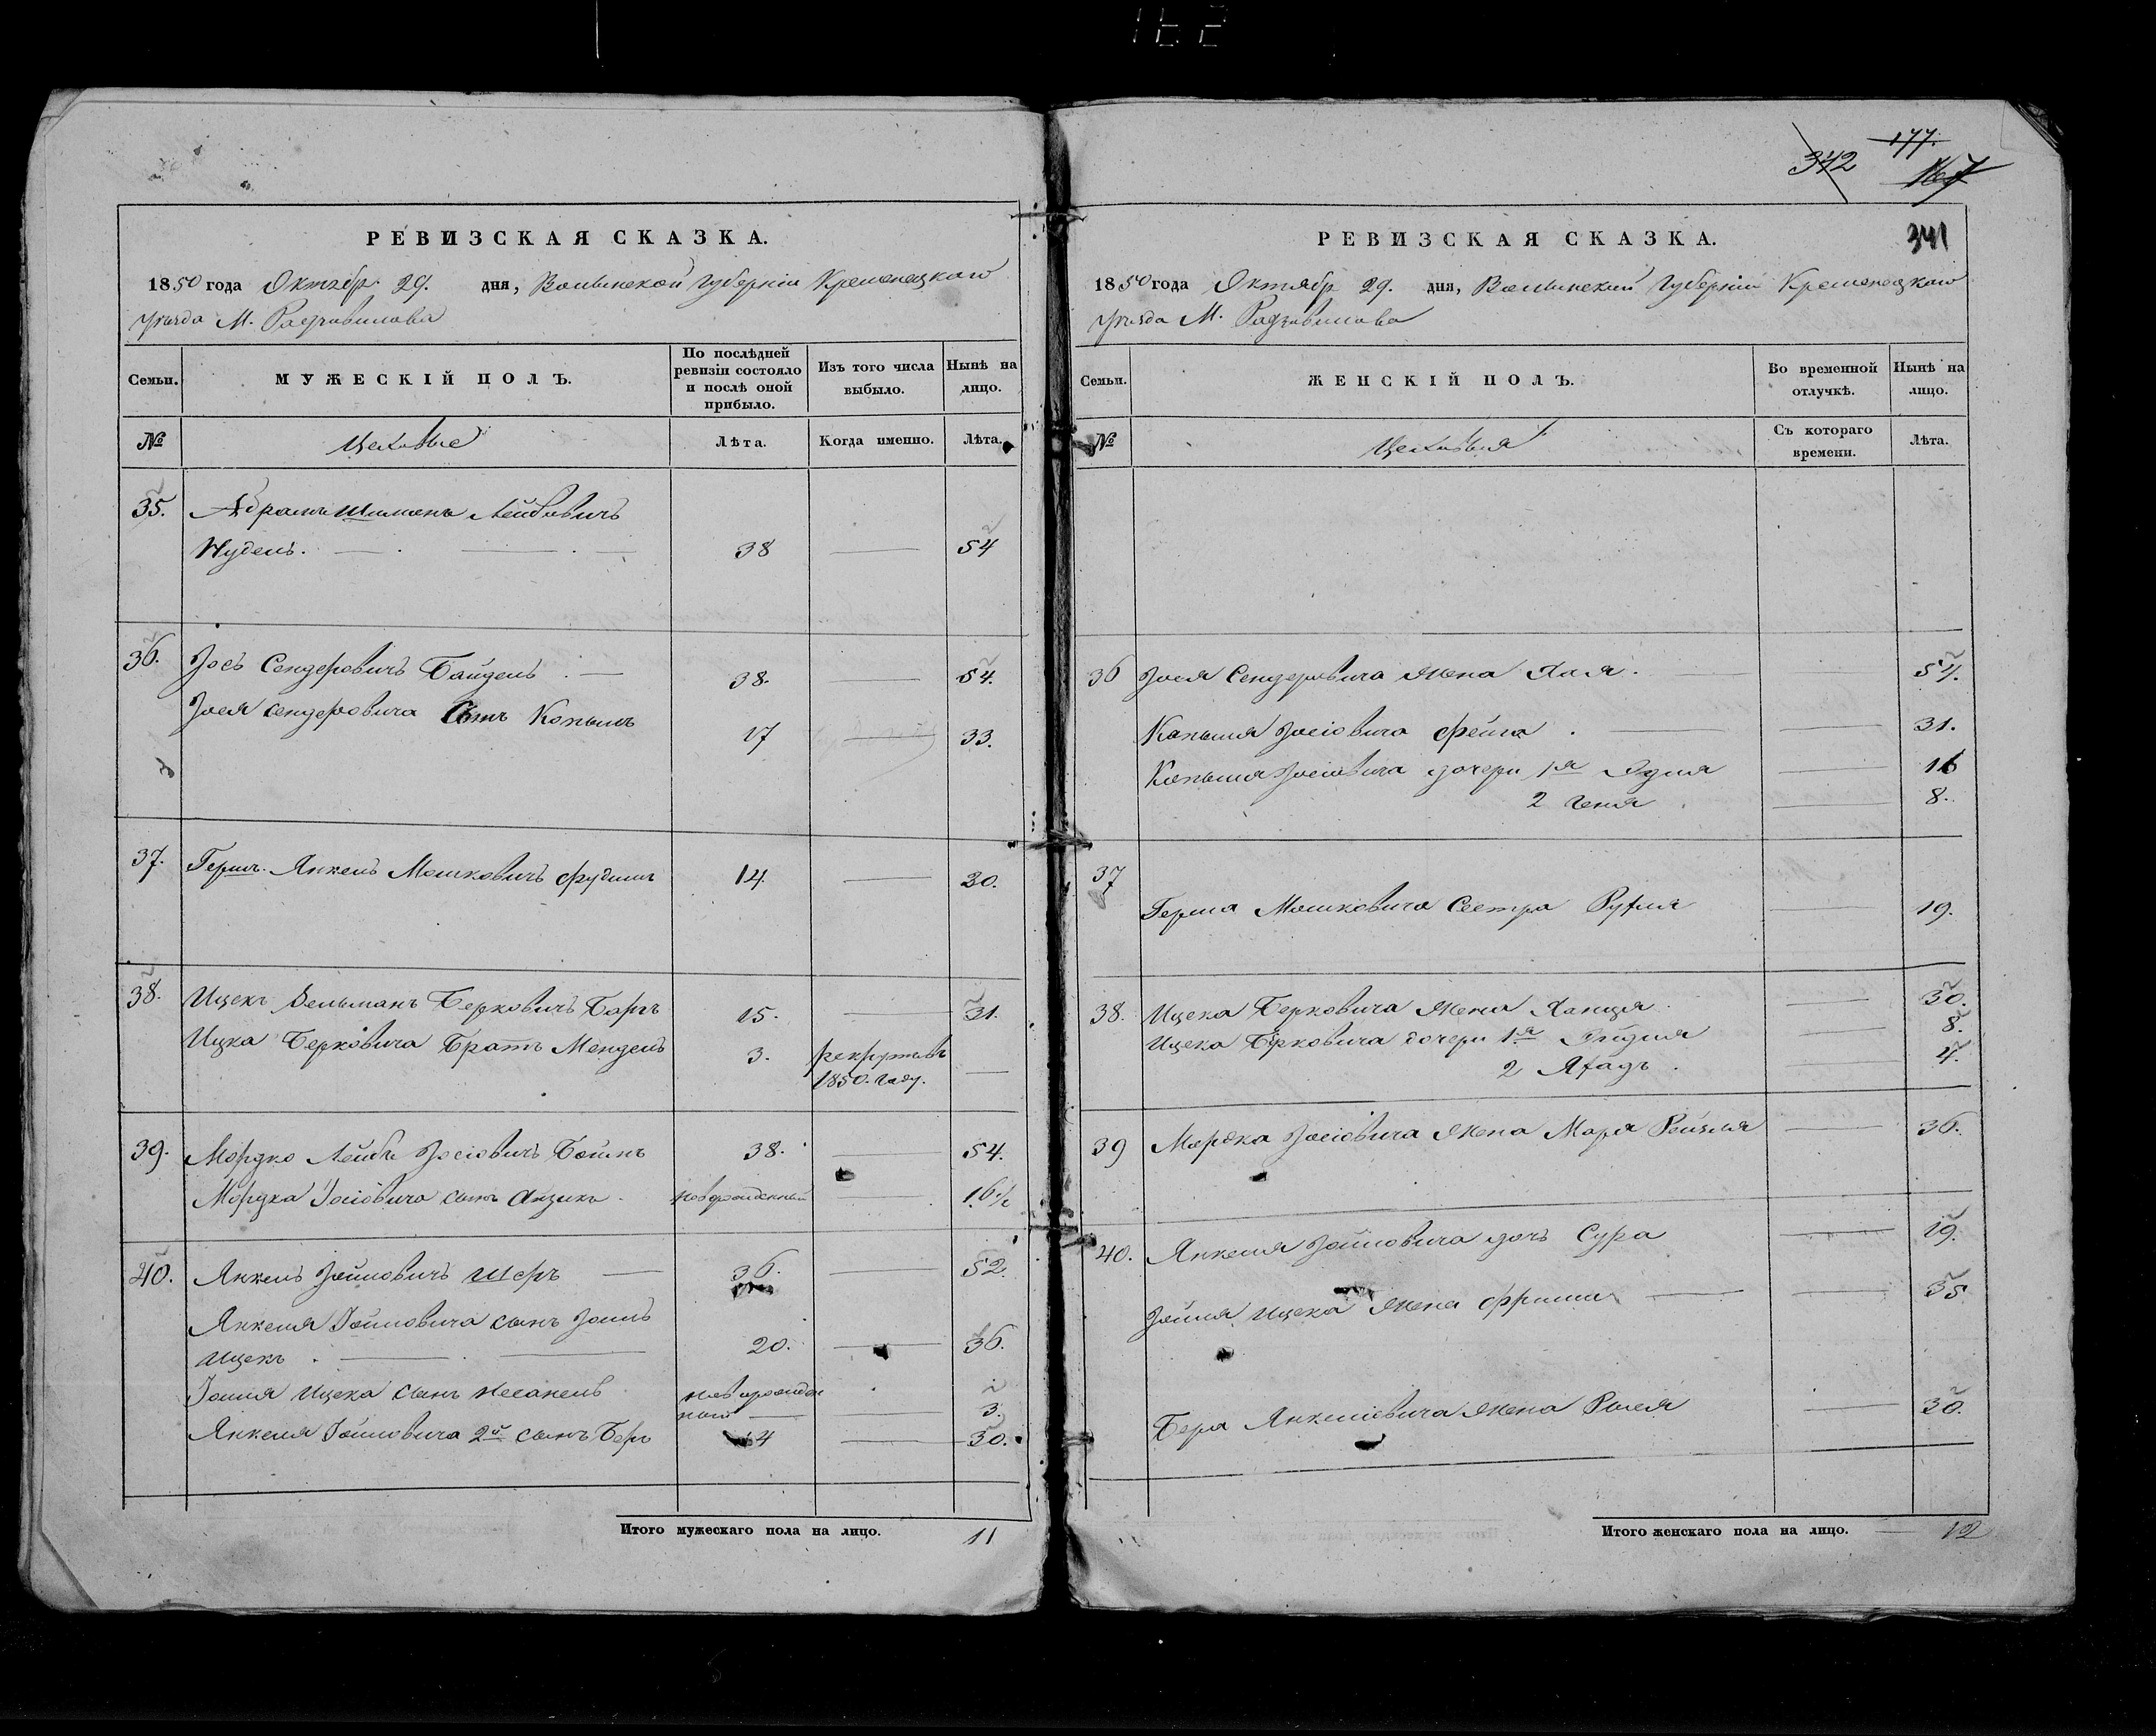 342 177.
167
РЕВИЗСКАЯ СКАЗКА.
1850 года Октябр. 29. дня, Волынской Губерніи Кременецкого
Уѣзда М. Радзивилова
Семьи. МУЖЕСКІЙ ПОЛЪ. По послѣдней ревизіи состояло и послѣ оной прибыло. Изъ того числа выбыло. Нынѣ на лицо.
№ Цеховые Лѣта. Когда именно. Лѣта.
35. Абрамъ Шимонъ Лейбовичъ
Нудель. 38 54
36. Іосъ Сендеровичъ Байдель 38. 54.
Іося Сендеровича Сынъ Копыль 17 33.
37. Герш. Янкель Мошковичъ 14. 30.
38. Ицекъ Зельманъ Берковичъ Баръ 15. 31.
Ицка Берковича Братъ Мендель 3. рекрутывъ
1850. году.
39. Мордко Лейбъ Іосіовичъ 38. 54.
Мордка Іосіовича сынъ Айзикъ новорожденный 16 1/2
40. Янкель Іойловичъ Шеръ 36. 52.
Янкеля Іойловича сынъ Іоиль
Ицекъ 20. 36.
Іоиля Ицека сынъ Несанель новорожден
ный 3.
Янкеля Іойловича 2й сынъ Беръ 14 30.
Итого мужескаго пола на лицо. 11
РЕВИЗСКАЯ СКАЗКА. 341
1850 года Октябр 29. дня, Волынской Губерніи Кременецкого
Уѣзда М. Радзивилова
Семьи. ЖЕНСКІЙ ПОЛЪ. Во временной отлучкѣ. Нынѣ на лицо.
№ Цеховыя Съ котораго времени. Лѣта.
36 Іося Сендеровича жена Хая. 54.
Копыля Іосіовича Фейга 31.
Копыля Іосіовича дочери 1я Эдля 16
2 Геня 8.
37
Герша Мошковича Сестра Рухля 19.
38. Ицека Берковича жена Ханця 30.
Ицека Берковича дочери 1я Эйдля 8.
2 4.
39 Мордка Іосіовича жена Маря Рейзля 36.
40. Янкеля Іойловича дочь Сура 19.
Іойля Ицека жена 35
Бера Янкеліовича жена 30.
Итого женскаго пола на лицо. 12